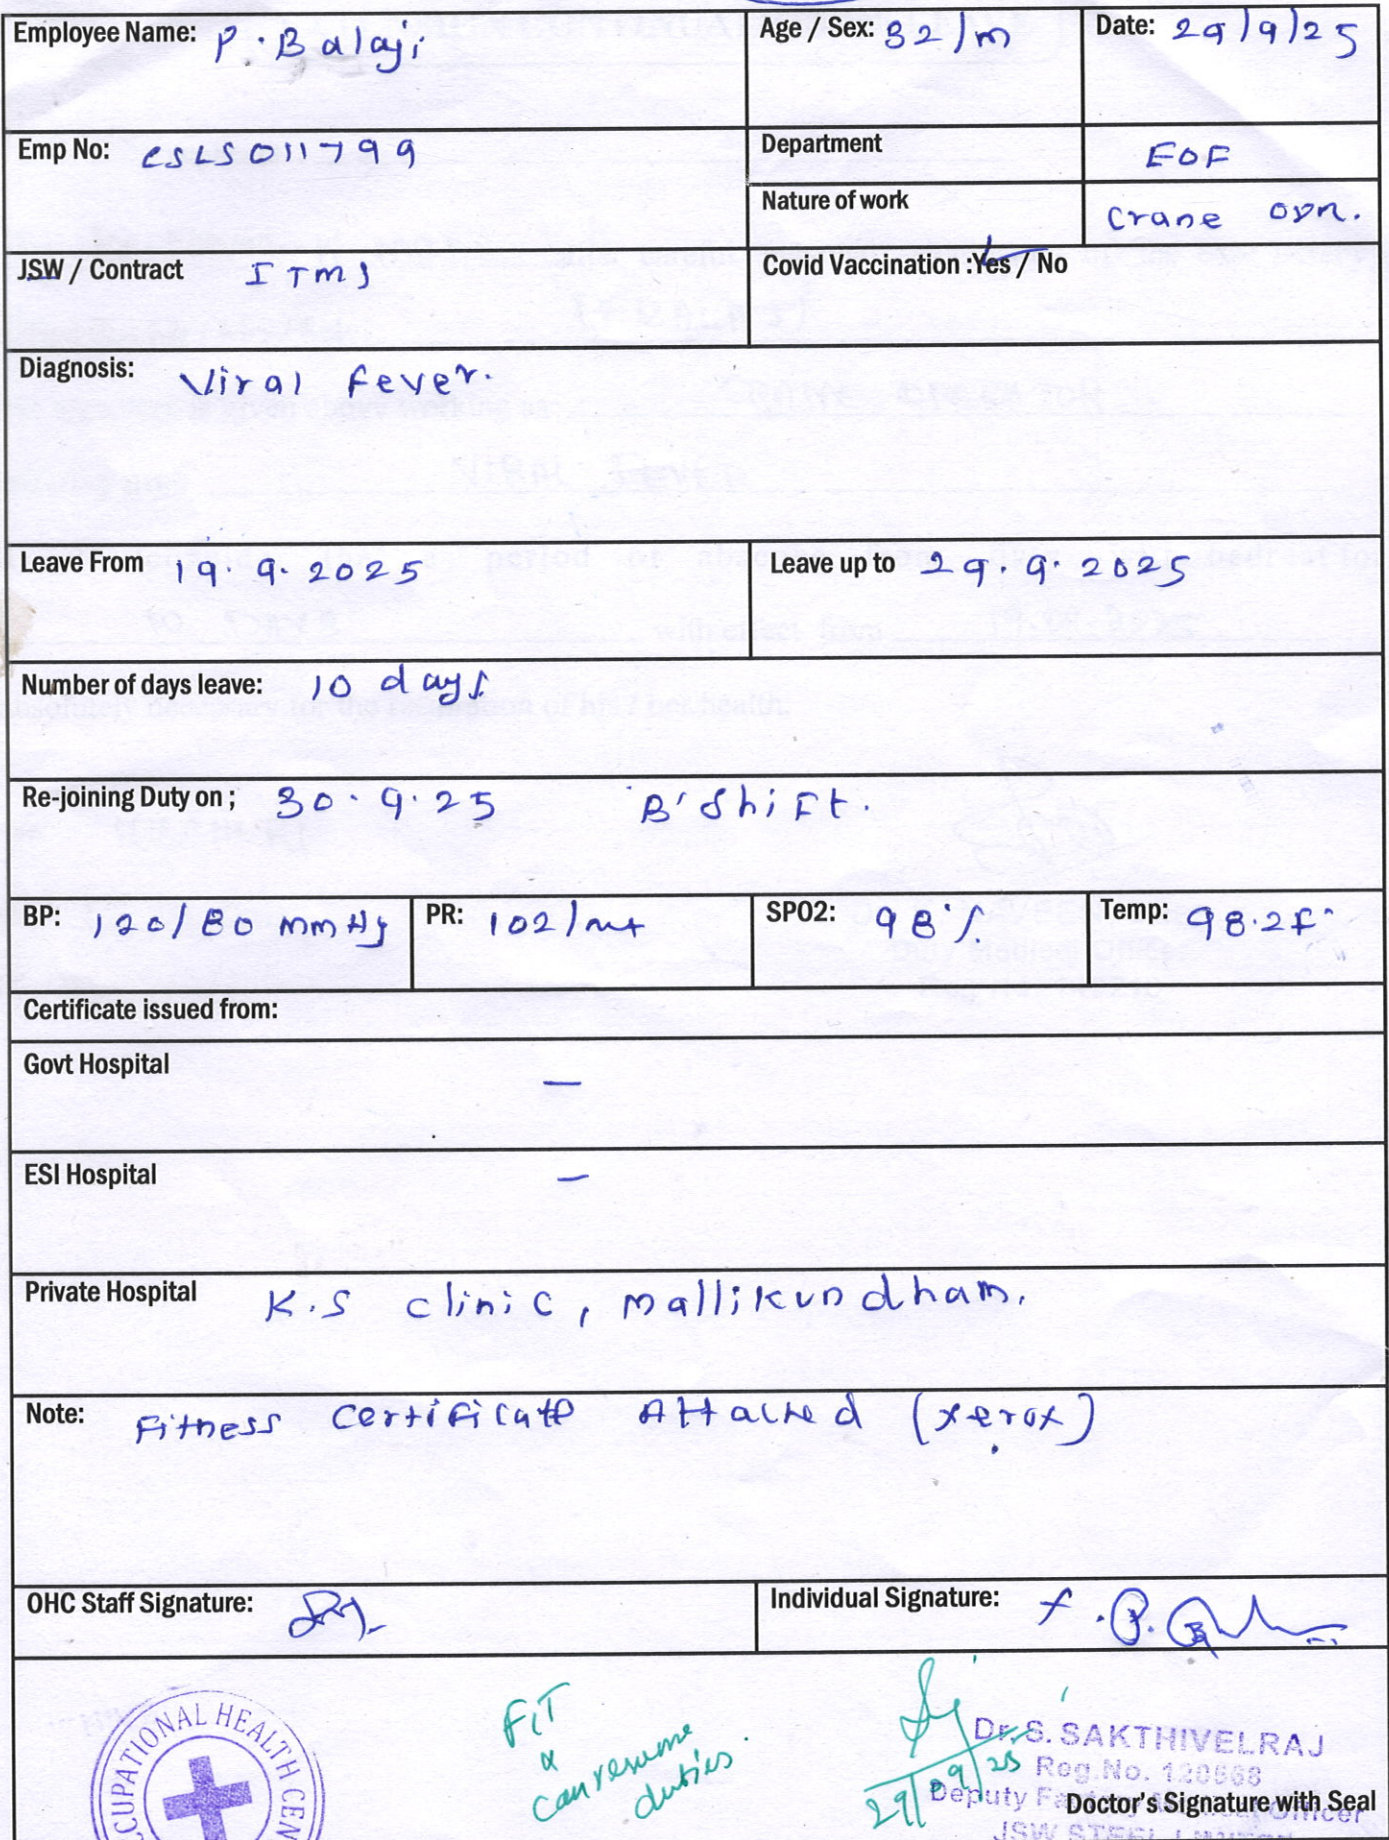 Employee Name: P. Balaji Age / Sex: 32/m Date: 29/9/25
Emp No: CSLS011799 Department EOF
Nature of work Crane opn.
JSW / Contract ITMS Covid Vaccination :Yes / No
Diagnosis: Viral Fever.
Leave From 19.9.2025 Leave up to 29.9.2025
Number of days leave: 10 days
Re-joining Duty on ; 30.9.25 'B' Shift.
BP: 120/80 mmHg PR: 102/mt SPO2: 98% Temp: 98.2F°
Certificate issued from:
Govt Hospital —
ESI Hospital —
Private Hospital K.S clinic, Mallikundham.
Note: Fitness Certificate Attached (xerox)
OHC Staff Signature: Individual Signature:
FIT
&
can resume
duties.
29/9/25
Dr. S. SAKTHIVELRAJ
Reg.No. 120568
Deputy
Doctor's Signature with Seal
JSW STEEL LIMITED
OCCUPATIONAL HEALTH CEN